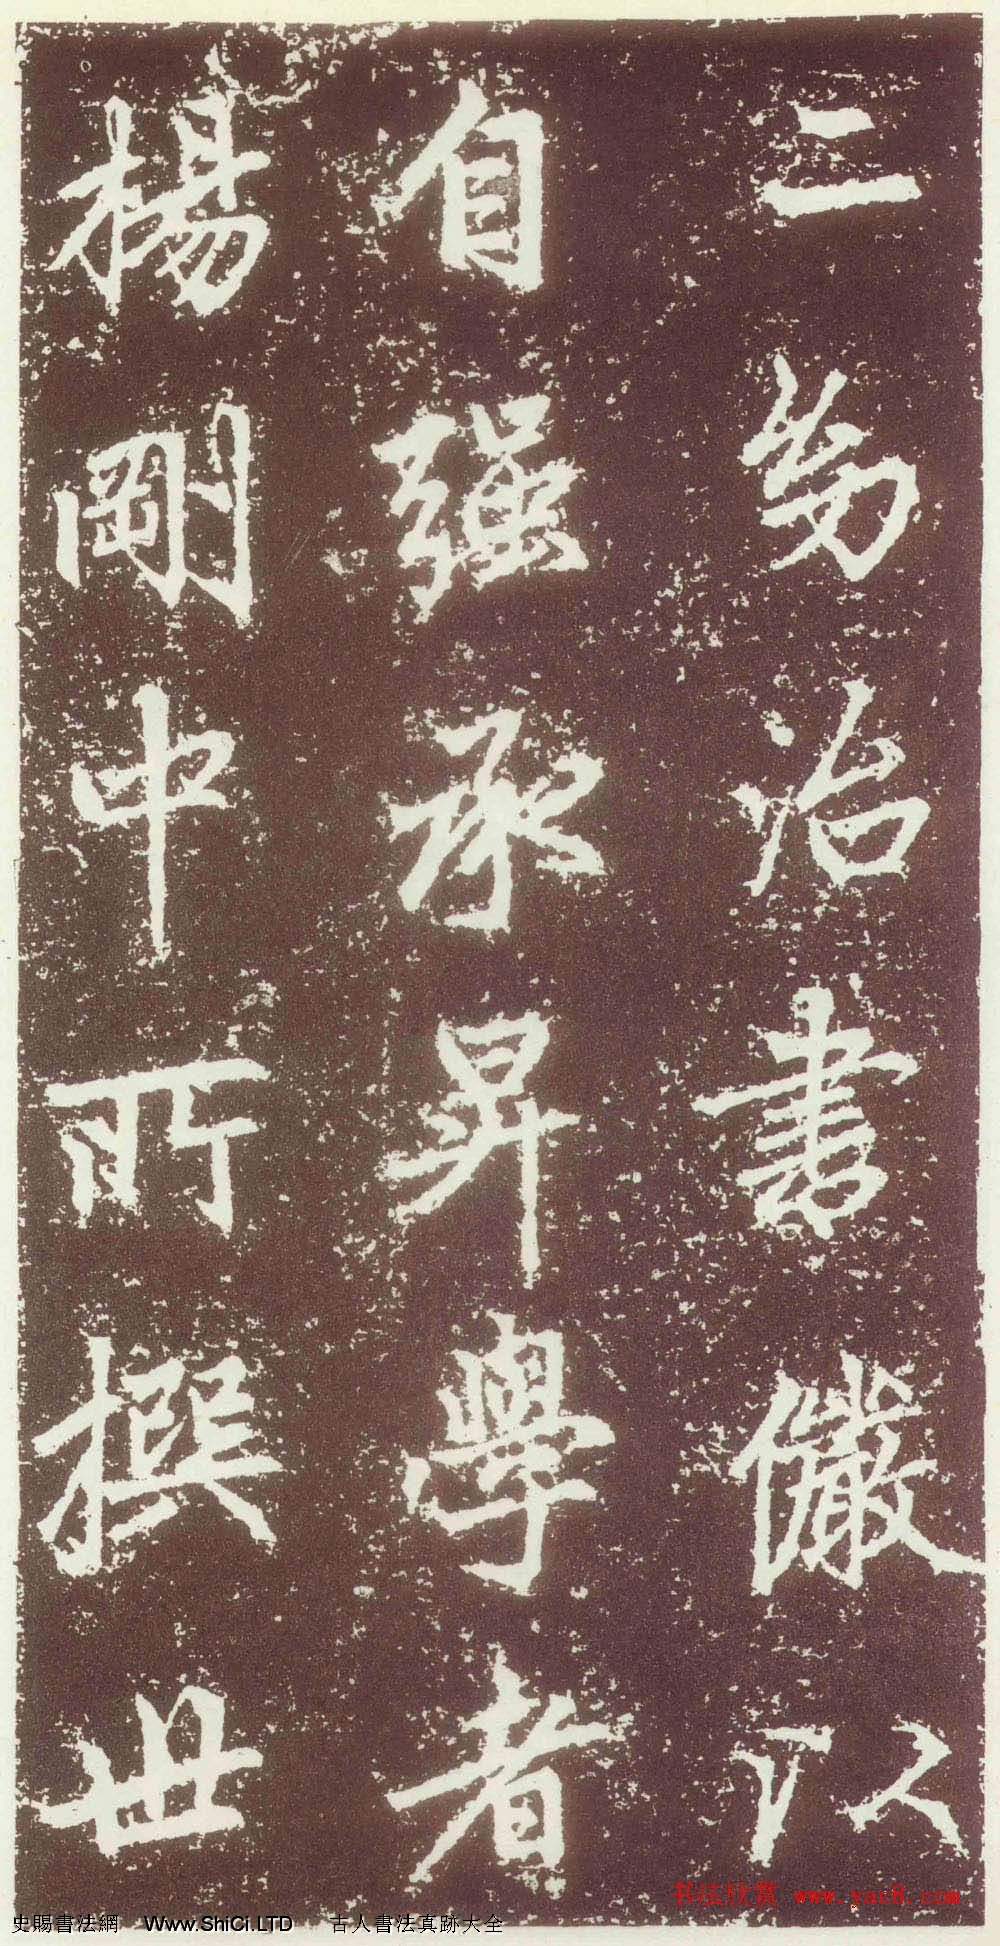 二幼治書儼以
自強承昇學者
楊剛中所撰世
书法欣赏 www.yac8.com
史賜書法網 Www.ShiCi.LTD 古人書法真跡大全